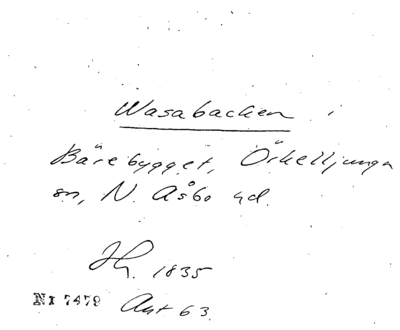 Wasabacken
Bärebygget, Örkelljunga
sn, N. Åsbo hd.
Hg. 1835
NI 7479 Ant 63